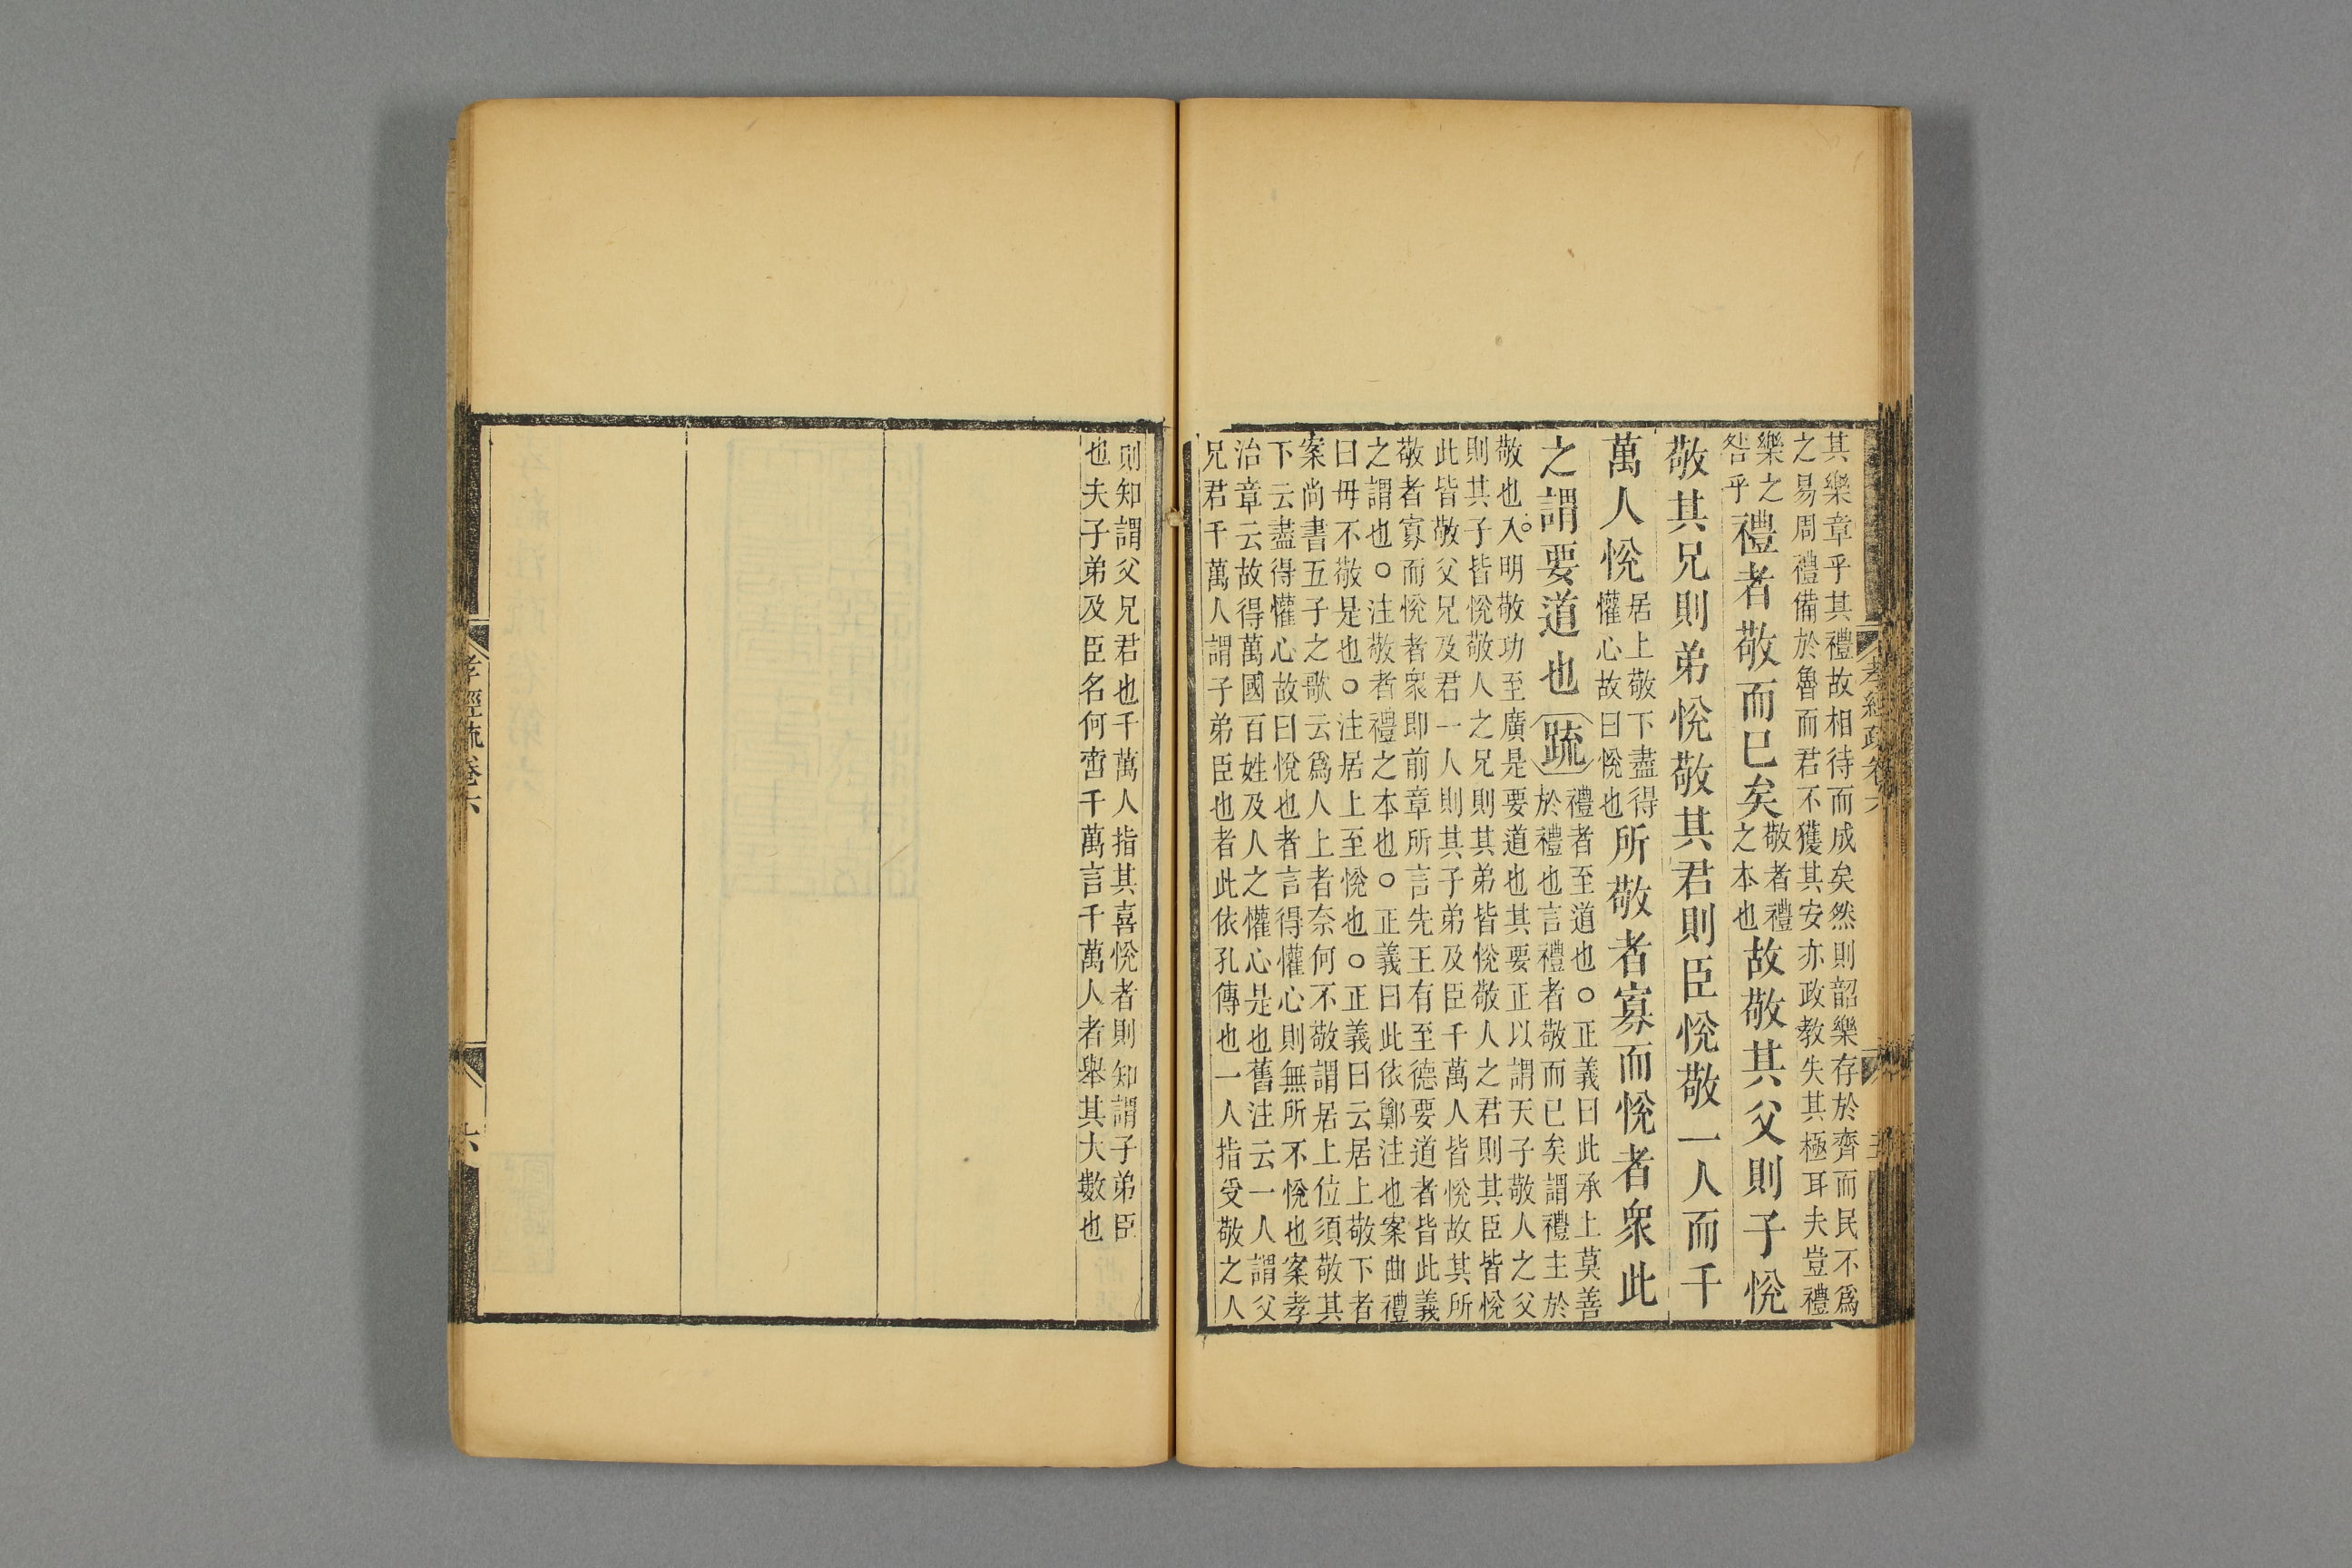 孝經疏卷六
其樂章乎其禮故相待而成矣然則韶樂存於齊而民不爲
之易周禮備於魯而君不獲其安亦政教失其極耳夫豈禮
樂之咎乎禮者敬而已矣敬者禮之本也故敬其父則子悅
敬其兄則弟悅敬其君則臣悅敬一人而千
萬人悅居上敬下盡得懽心故曰悅也所敬者寡而悅者衆此
之謂要道也疏禮者至道也○正義曰此承上莫善
於禮也言禮者敬而已矣謂禮主於
敬也入明敬功至廣是要道也其要正以謂天子敬人之父
則其子皆悅敬人之兄則其弟皆悅敬人之君則其臣皆悅
此皆敬父兄及君一人則其子弟及臣千萬人皆悅故其所
敬者寡而悅者衆即前章所言先王有至德要道者皆此義
之謂也○注敬者禮之本也○正義曰此依鄭注也案曲禮
曰毋不敬是也○注居上至悅也○正義曰云居上敬下者
案尚書五子之歌云爲人上者奈何不敬謂居上位須敬其
下云盡得懽心故曰悅也者言得懽心則無所不悅也案孝
治章云故得萬國百姓及人之懽心是也舊注云一人謂父
兄君千萬人謂子弟臣也者此依孔傳也一人指受敬之人
則知謂父兄君也千萬人指其喜悅者則知謂子弟臣
也夫子弟及臣名何啻千萬言千萬人者舉其大數也
孝經疏卷六
六